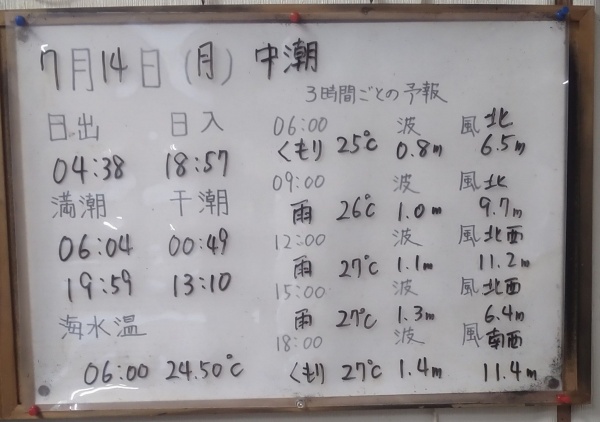 7月14日(月) 中潮
日出 日入
04:38 18:57
満潮 干潮
06:04 00:49
19:59 13:10
海水温
06:00 24.50℃
3時間ごとの予報
06:00 波 風 北
くもり 25℃ 0.8m 6.5m
09:00 波 風 北
雨 26℃ 1.0m 9.7m
12:00 波 風 北西
雨 27℃ 1.1m 11.2m
15:00 波 風 北西
雨 27℃ 1.3m 6.4m
18:00 波 風 南西
くもり 27℃ 1.4m 11.4m